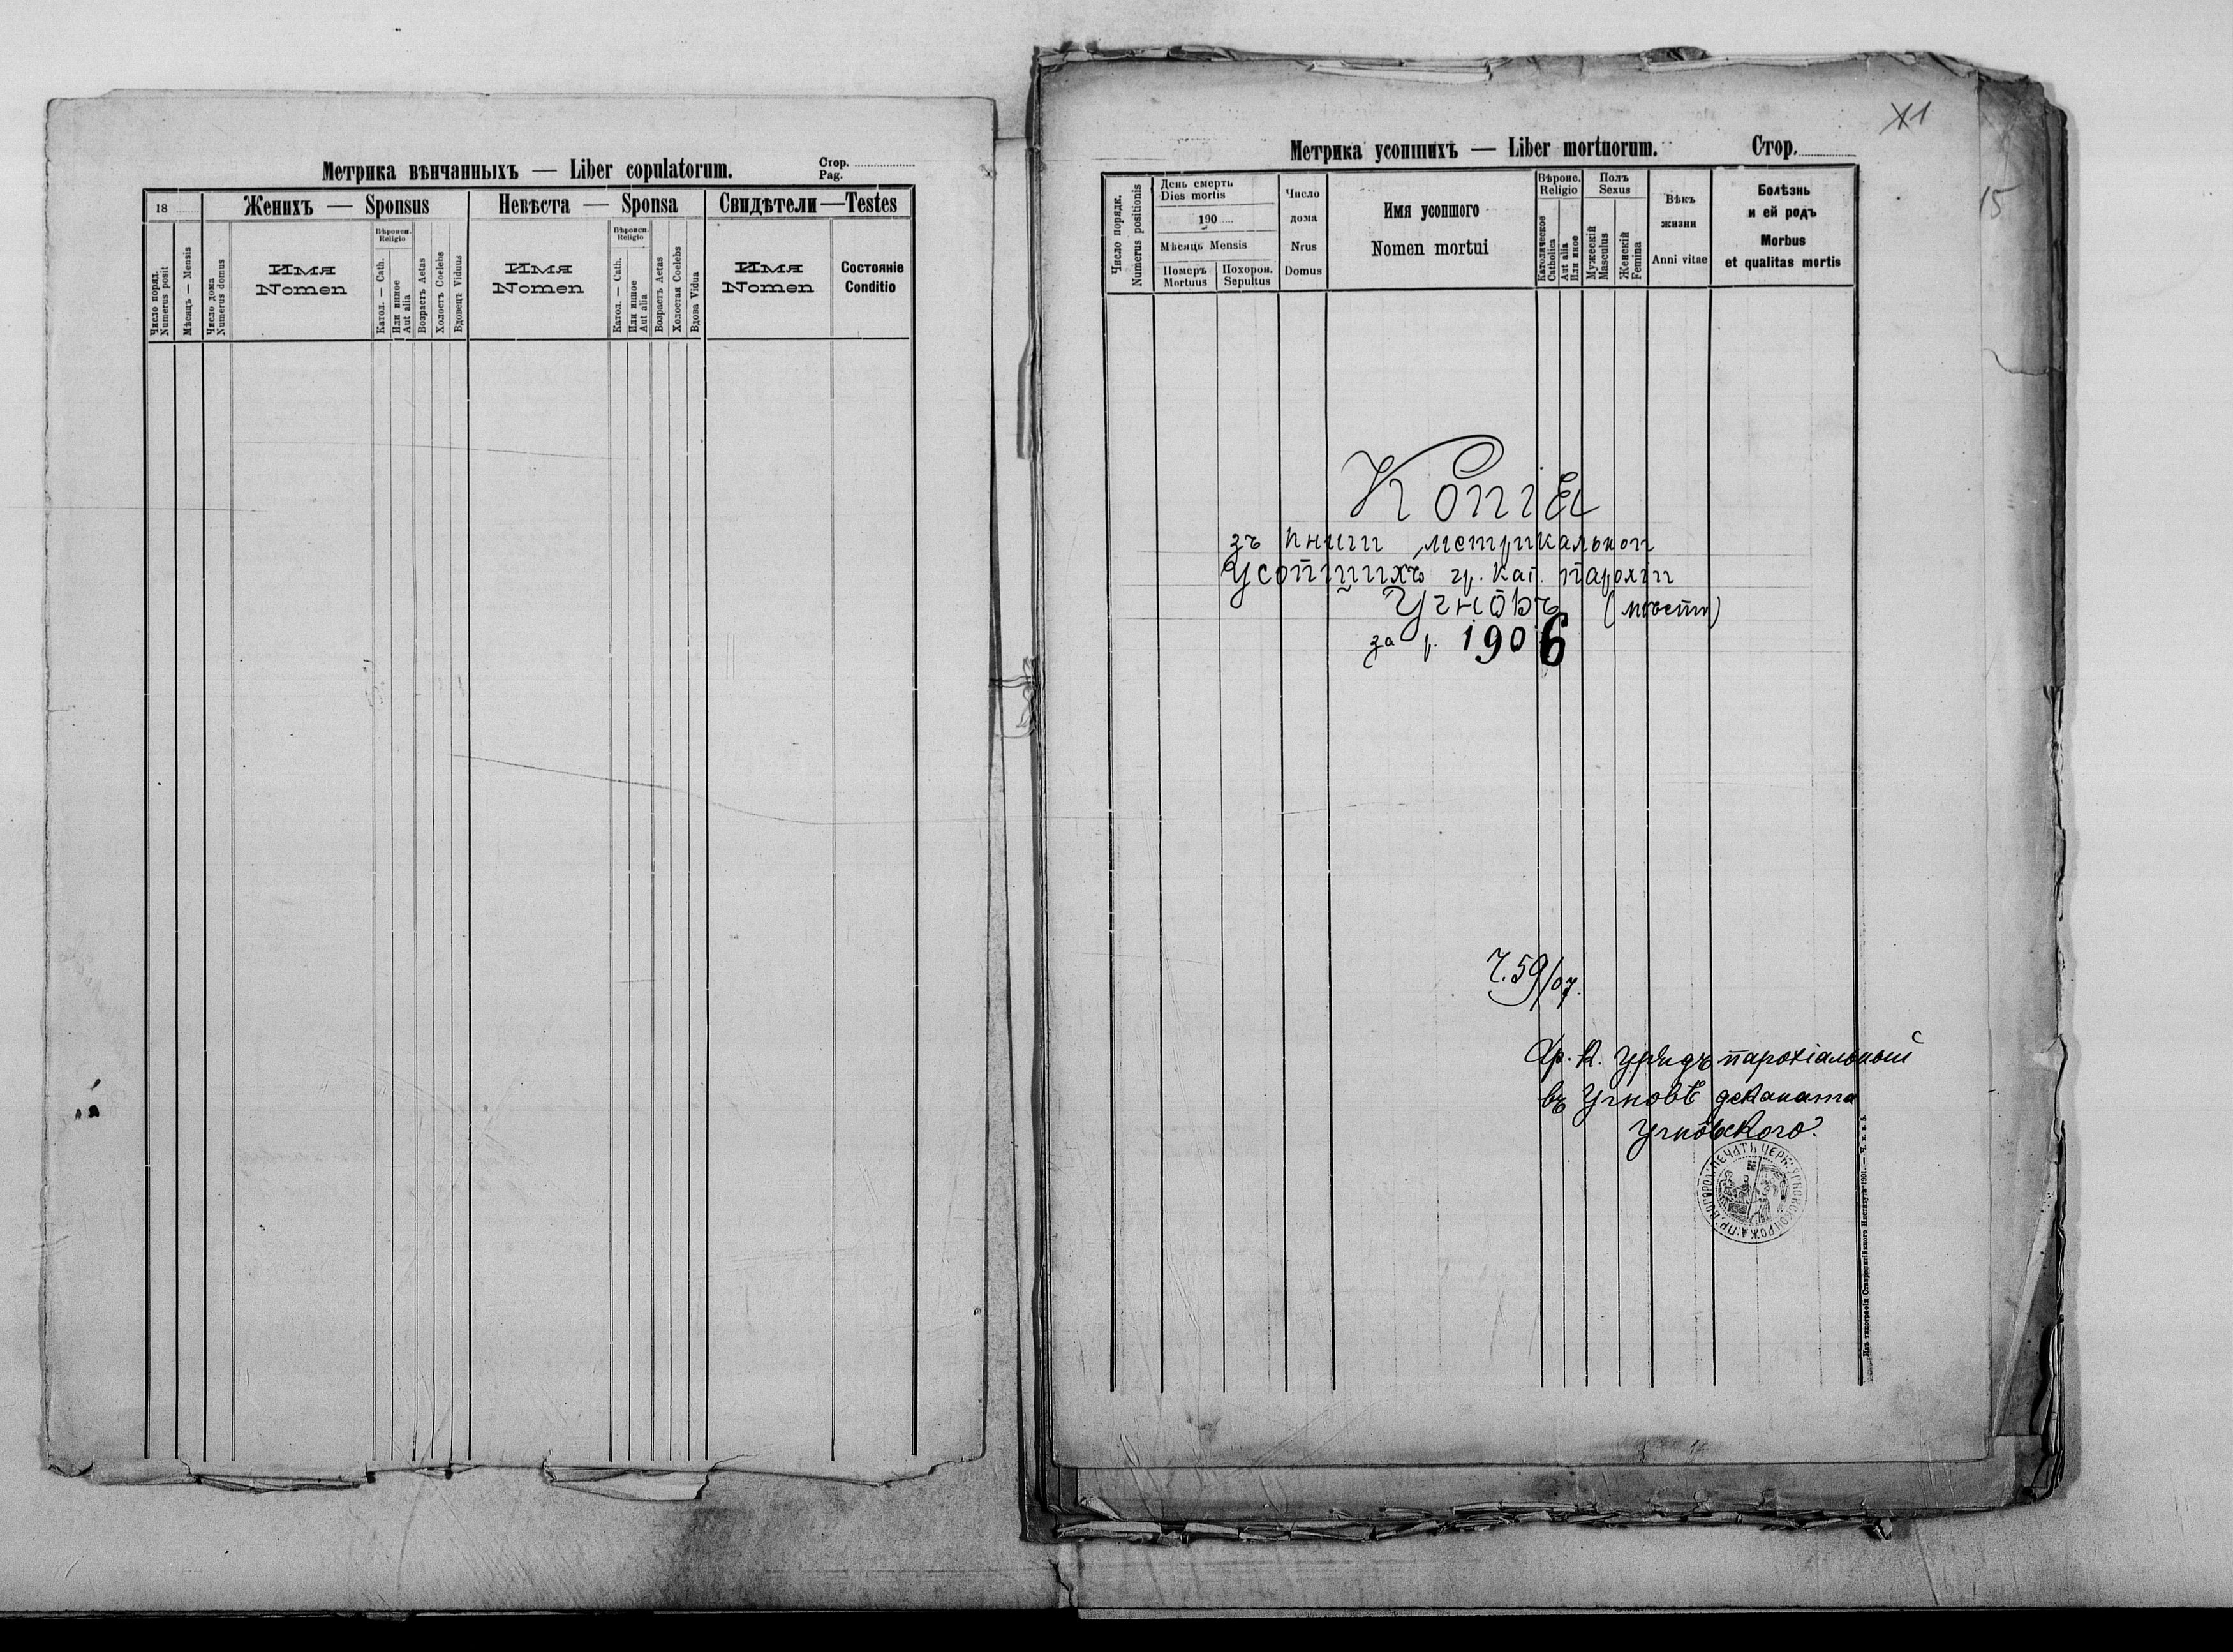 Метрика вѣнчанныхъ — Liber copulatorum.
Стор.
Pag.
18
Женихъ — Sponsus
Невѣста — Sponsa
Свидѣтели — Testes
Число поряд.
Numerus posit
Мѣсяцъ — Mensis
Число дома
Numerus domus
Имя
Nomen
Вѣроисп.
Religio
Катол. — Cath.
Или иное
Aut alia
Возрастъ Aetas
Холостъ Coelebs
Вдовецъ Viduus
Имя
Nomen
Вѣроисп.
Religio
Катол. — Cath.
Или иное
Aut alia
Возрастъ Aetas
Холостая Coelebs
Вдова Vidua
Имя
Nomen
Состоянie
Conditio
11
15
Метрика усопшихъ — Liber mortuorum.
Стор.
Число порядк.
Numerus positionis
День смерть
Dies mortis
190
Мѣсяць Mensis
Померъ
Mortuus
Похорон.
Sepultus
Число
дома
Nrus
Domus
Имя усопшого
Nomen mortui
Вѣроис.
Religio
Католическое
Catholica
Aut alia
Или иное
Полъ
Sexus
Мужескій
Masculus
Женскій
Femina
Вѣкъ
жизни
Anni vitae
Болѣзнь
и ей родъ
Morbus
et qualitas mortis
Копія
зъ книги метрикальнои
Усопшихъ гр. кат. парохіи
Угнôвъ (мѣсто)
за р. 1906
Ч. 59/07.
Гр. К. Урядъ парохіальный
въ Угновѣ деканата
Угнôвского.
ПЕЧАТЬ ЦЕРК. УГНОВСКОЙ РОЖД. ПР. БОГОРОД.
Изъ типографіи Ставропигійского Института 1901. — Ч. к. в. 5.